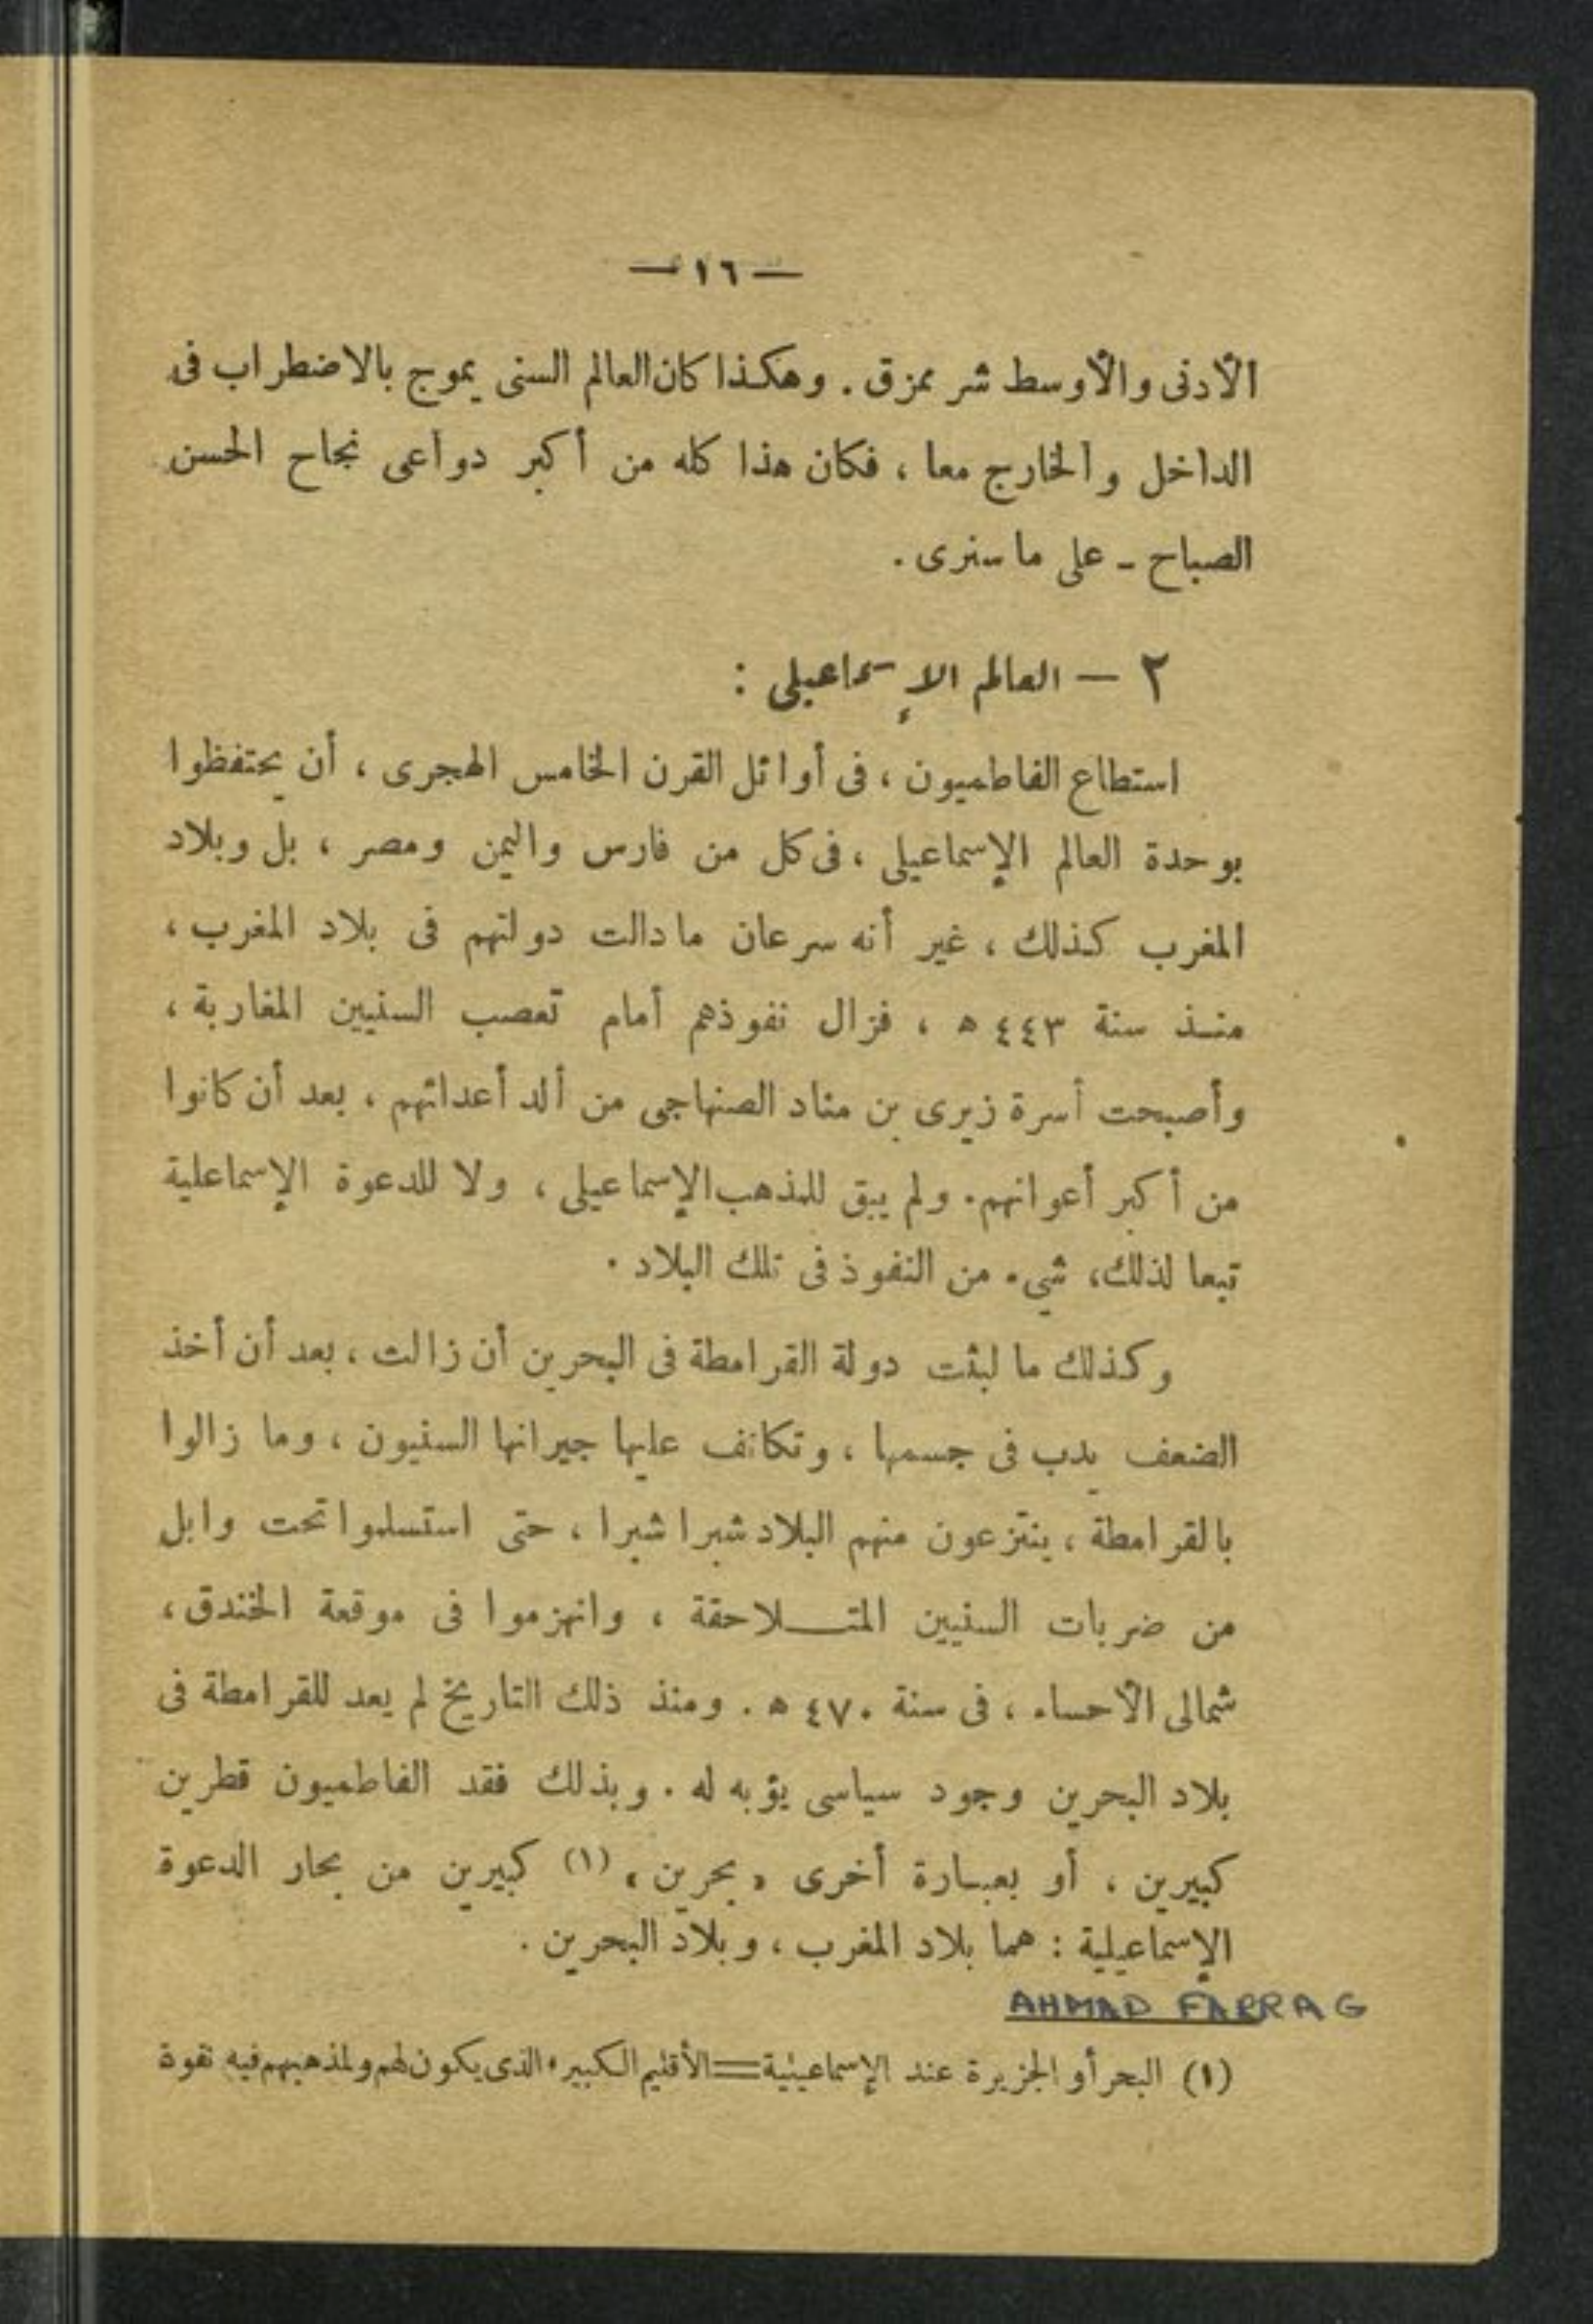 — ١٦ —
الأدنى والأوسط شر ممزق . وهكذا كان العالم السنى يموج بالاضطراب فى
الداخل والخارج معا ، فكان هذا كله من أكبر دواعى نجاح الحسن
الصباح - على ما سنرى .
٢ — العالم الإسماعيلى :
استطاع الفاطميون ، فى أوائل القرن الخامس الهجرى ، أن يحتفظوا
بوحدة العالم الإسماعيلى ، فى كل من فارس واليمن ومصر ، بل وبلاد
المغرب كذلك ، غير أنه سرعان ما دالت دولتهم فى بلاد المغرب ،
منذ سنة ٤٤٣ ه ، فزال نفوذهم أمام تعصب السنيين المغاربة ،
وأصبحت أسرة زيرى بن مناد الصنهاجى من ألد أعدائهم ، بعد أن كانوا
من أكبر أعوانهم . ولم يبق للمذهب الإسماعيلى ، ولا للدعوة الإسماعلية
تبعا لذلك ، شيء من النفوذ فى تلك البلاد .
وكذلك ما لبثت دولة القرامطة فى البحرين أن زالت ، بعد أن أخذ
الضعف يدب فى جسمها ، وتكاتف عليها جيرانها السنيون ، وما زالوا
بالقرامطة ، ينتزعون منهم البلاد شبرا شبرا ، حتى استسلموا تحت وابل
من ضربات السنيين المتلاحقة ، وانهزموا فى موقعة الخندق ،
شمالى الأحساء ، فى سنة ٤٧٠ ه . ومنذ ذلك التاريخ لم يعد للقرامطة فى
بلاد البحرين وجود سياسى يؤبه له . وبذلك فقد الفاطميون قطرين
كبيرين ، أو بعبارة أخرى « بحرين » (١) كبيرين من بحار الدعوة
الإسماعيلية : هما بلاد المغرب ، وبلاد البحرين .
AHMAD FARRAG
(١) البحر أو الجزيرة عند الإسماعيلية = الأقليم الكبير ، الذى يكون لهم ولمذهبهم فيه نقوة